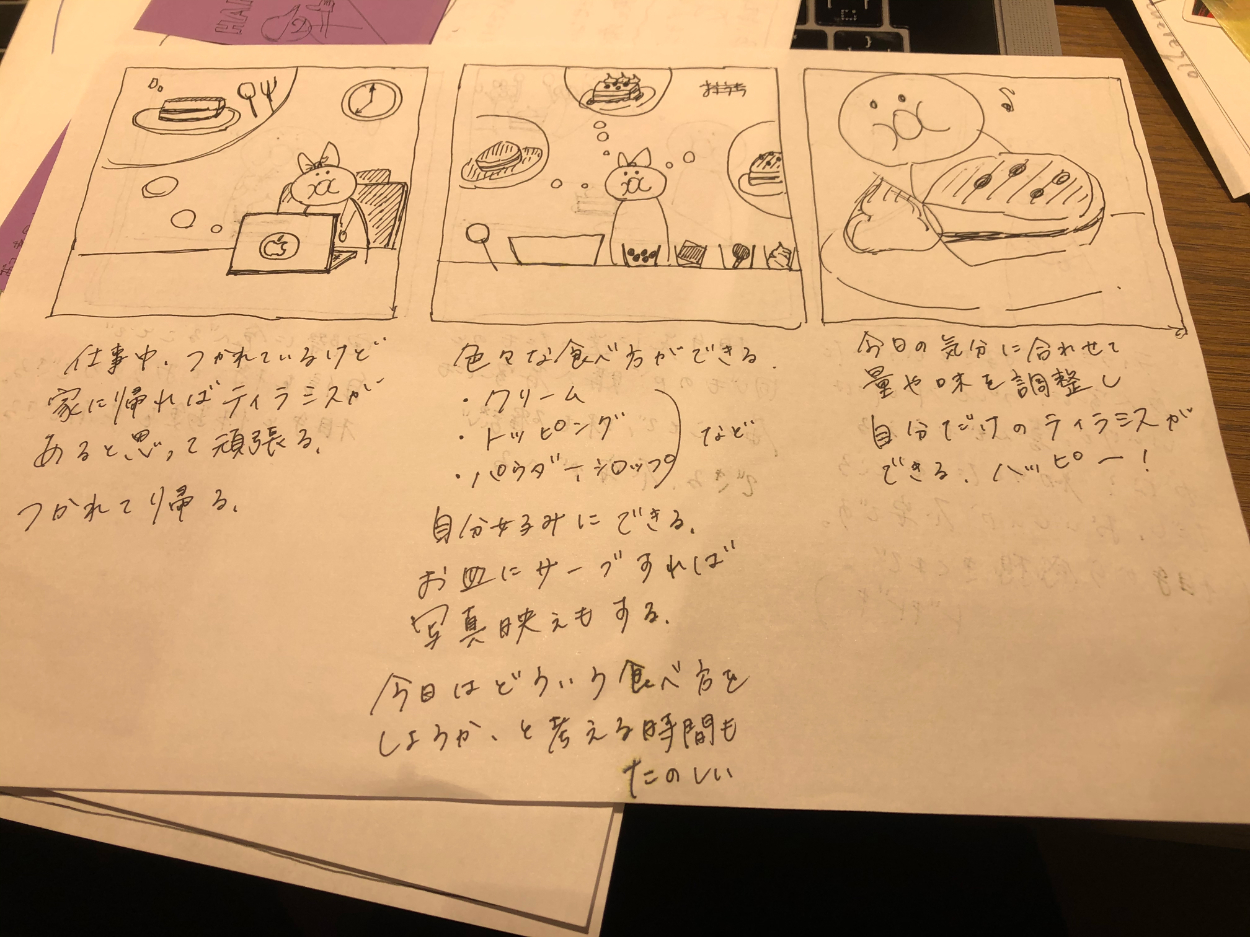 HA
仕事中、つかれているけど
家に帰ればティラミスが
あると思って頑張る。
つかれて帰る。
色々な食べ方ができる。
・クリーム
・トッピング
・パウダー、シロップ
など
自分好みにできる。
お皿にサーブすれば
写真映えもする。
今日はどういう食べ方を
しようか、と考える時間も
たのしい
今日の気分に合わせて
量や味を調整し
自分だけのティラミスが
できる。ハッピー!